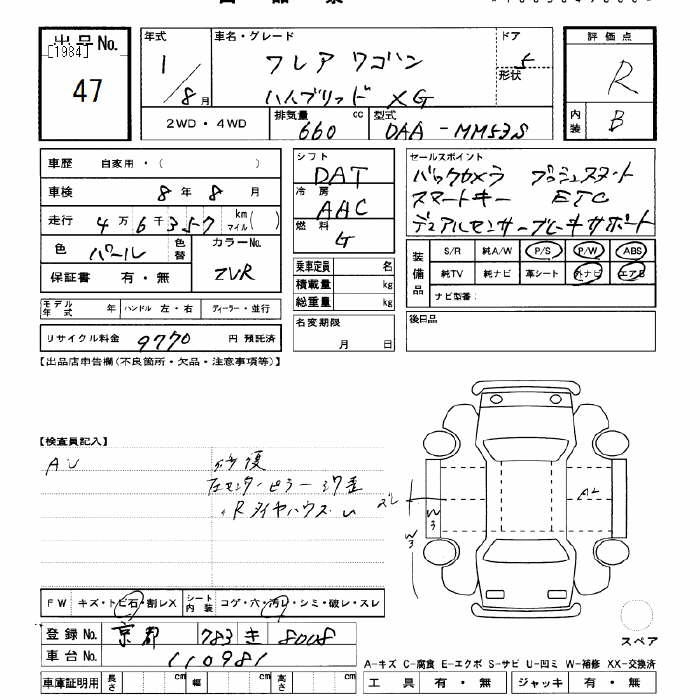 出品No. 年式 車名・グレード ドア 評価点
[1984] 1 フレア ワゴン 5 R
47 /8月 ハイブリッド XG 形状
2WD・4WD 排気量 cc 型式 内装 B
660 DAA - MM53S
車歴 自家用・( ) シフト DAT セールスポイント
車検 8年 8月 冷房 AAC バックカメラ プッシュスタート
走行 4万6千357 km マイル( ) 燃料 G スマートキー ETC
デュアルセンサーブレーキサポート
色 パール 色替 カラーNo. ZVR
保証書 有・無 乗車定員 名 装備品 S/R 純A/W P/S P/W ABS
積載量 kg 純TV 純ナビ 革シート 外ナビ エアB
モデル年式 年 ハンドル 左・右 ディーラー・並行 総重量 kg ナビ型番:
リサイクル料金 9770 円 預託済 名変期限 月 日 後日品
【出品店申告欄(不良箇所・欠品・注意事項等)】
【検査員記入】
AU 修復
左センターピラー
RタイヤハウスU
ズレ
W3
W3
A2
FW キズ・トビ石・割レX シート内装 コゲ・穴・汚レ・シミ・破レ・スレ
登録No. 京都 783 き 8008
車台No. 110981
スペア
A-キズ C-腐食 E-エクボ S-サビ U-凹ミ W-補修 XX-交換済
車庫証明用 長さ cm 幅 cm 高さ cm 工具 有・無 ジャッキ 有・無